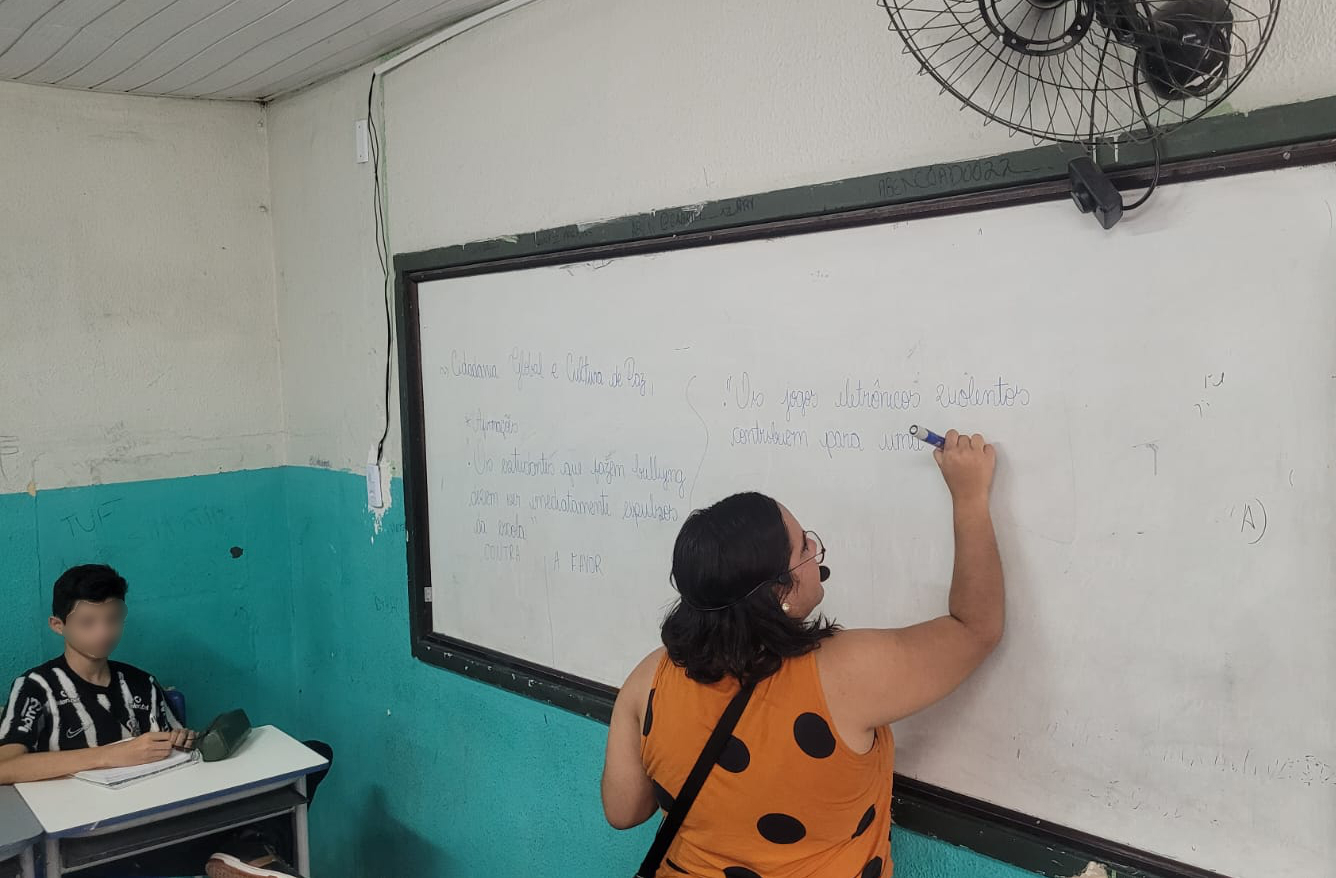 Cidadania Global e Cultura de Paz
* Afirmações
"Os estudantes que fazem bullying
devem ser imediatamente expulsos
da escola"
CONTRA | A FAVOR
"Os jogos eletrônicos violentos
contribuem para uma
A)
TUF